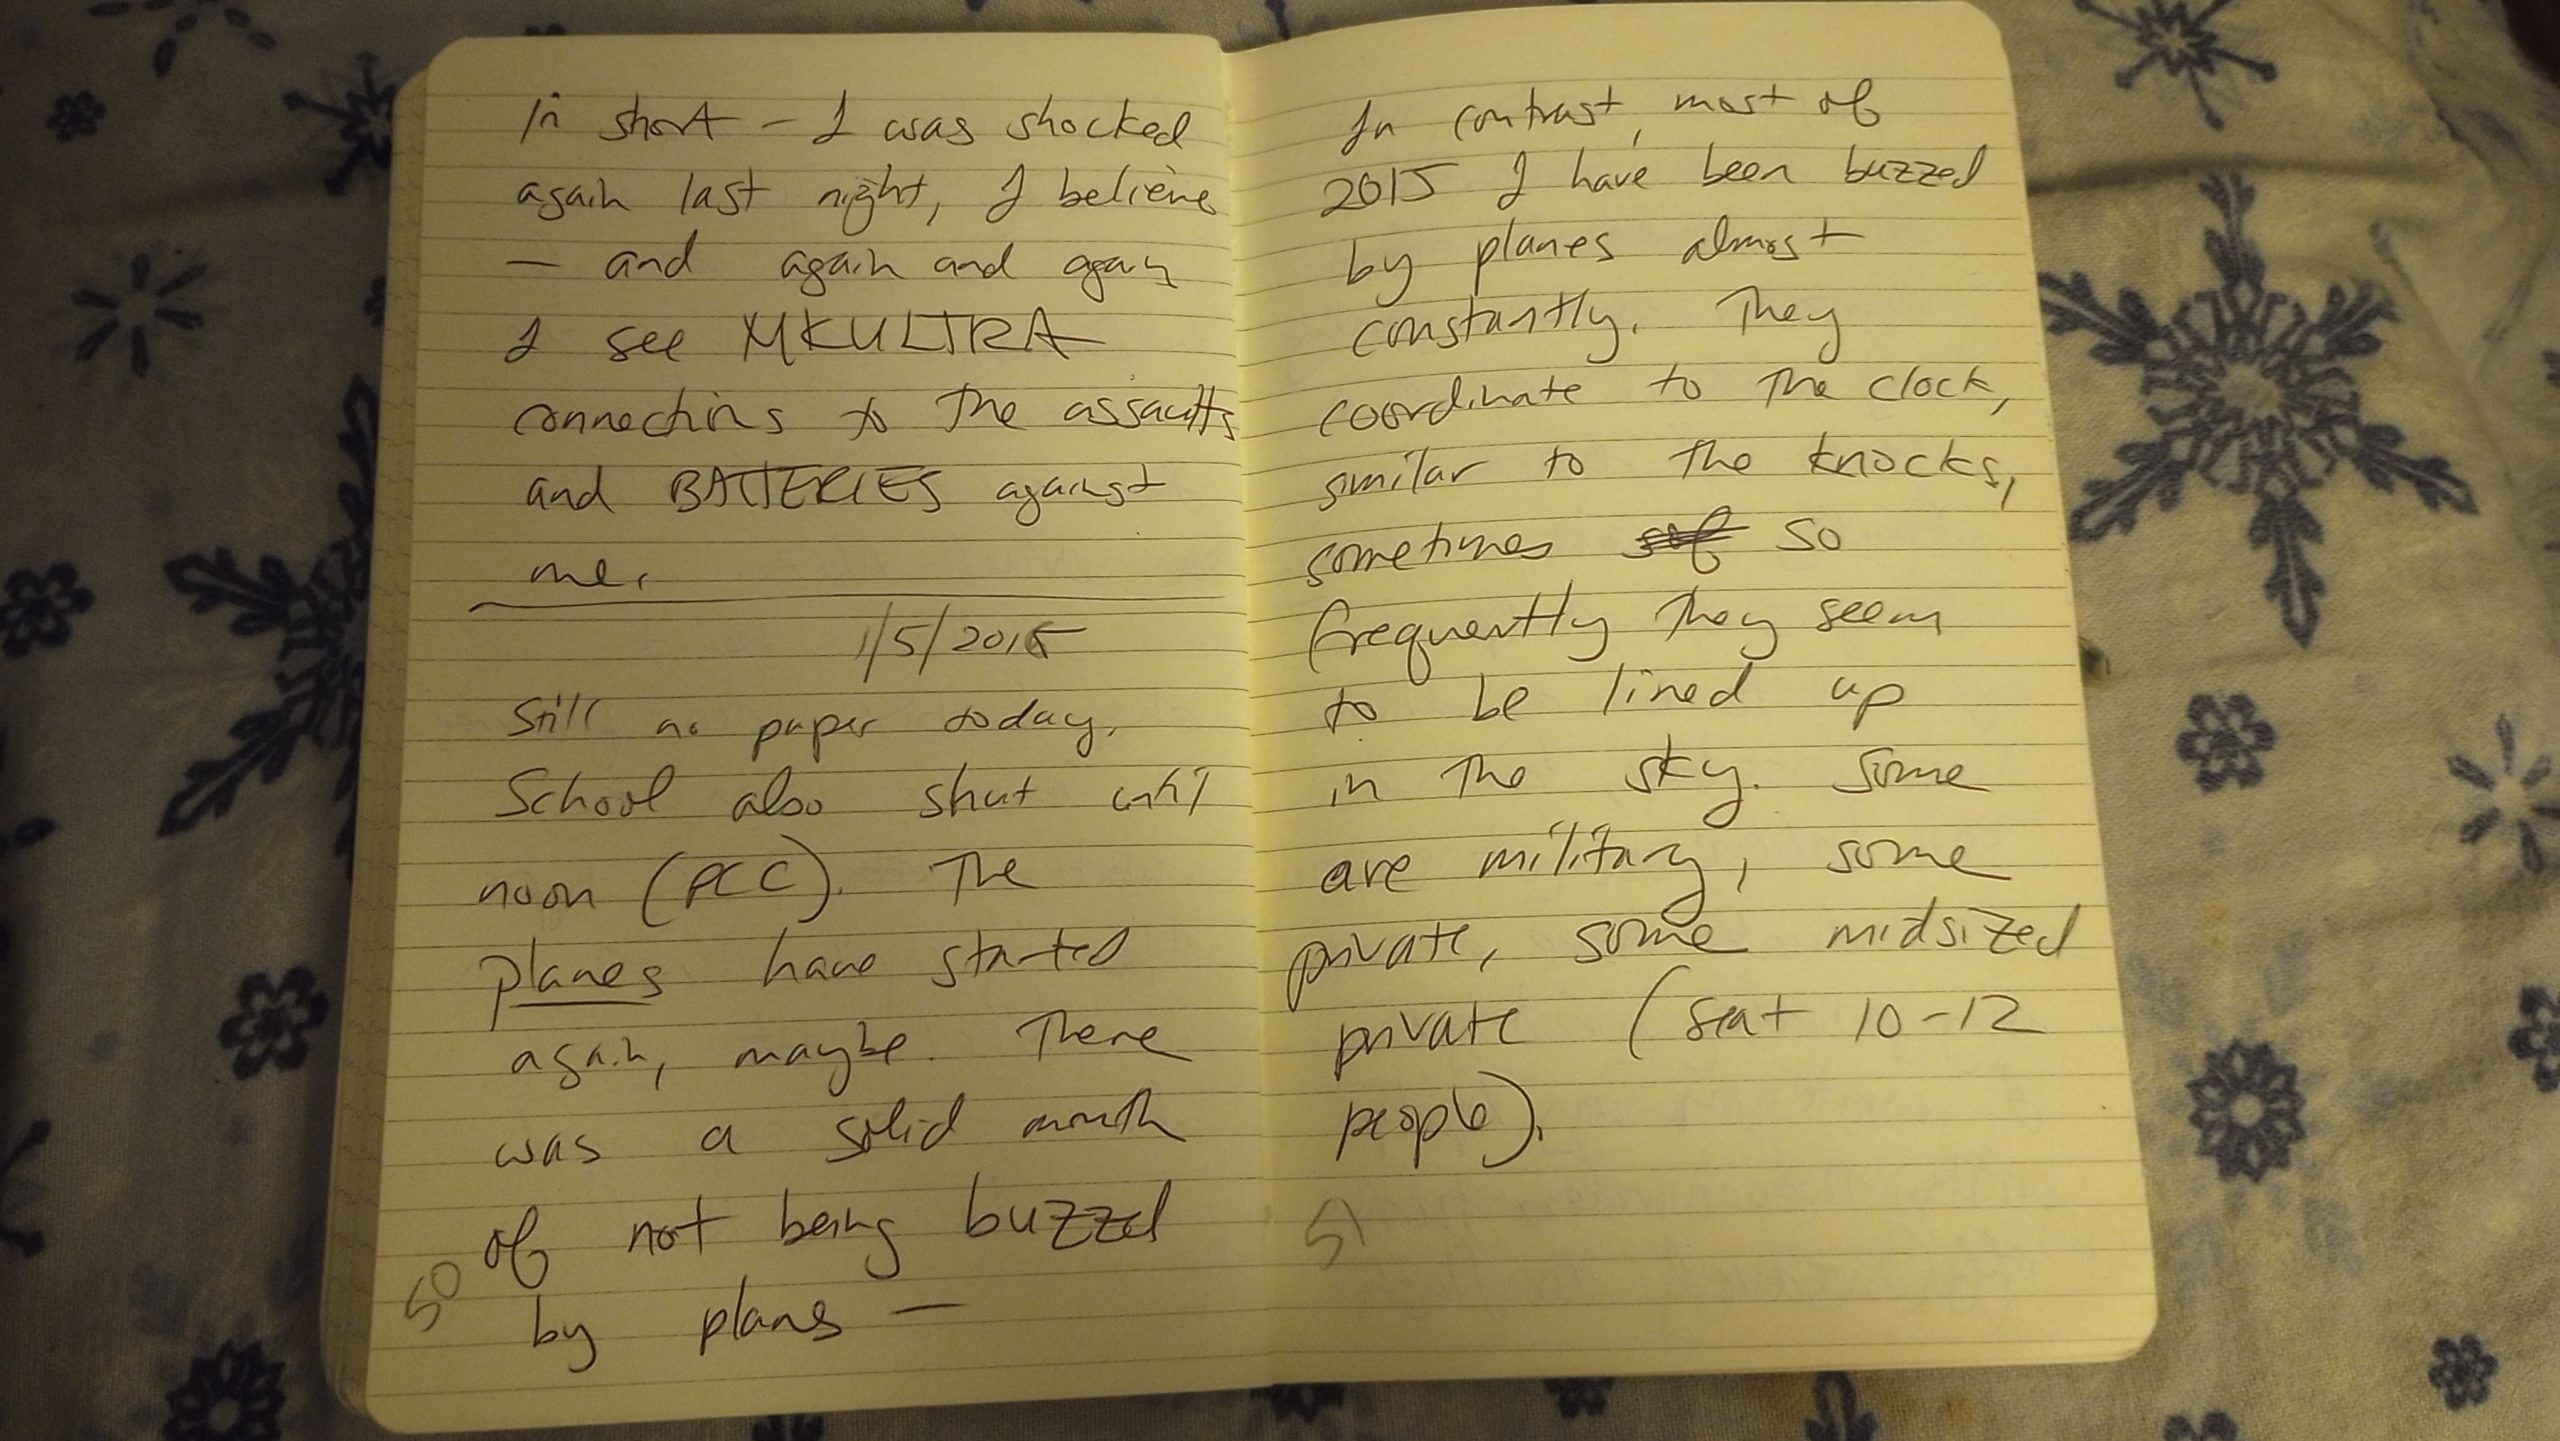 In short – I was shocked
again last night, I believe
– and again and again
I see MKULTRA
connections to the assaults
and BATTERIES against
me.
1/5/2016
Still no paper today.
School also shut until
noon (PCC). The
planes have started
again, maybe. There
was a solid month
of not being buzzed
by planes –
50
In contrast, most of
2015 I have been buzzed
by planes almost
constantly. They
coordinate to the clock,
similar to the knocks,
sometimes so
frequently they seem
to be lined up
in the sky. Some
are military, some
private, some midsized
private (seat 10-12
people).
51